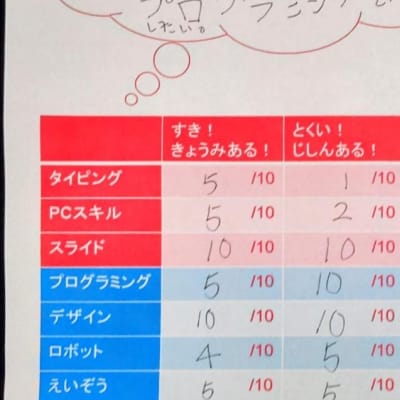 プログラミング
したい。
すき！ とくい！
きょうみある！ じしんある！
タイピング 5 /10 1 /10
PCスキル 5 /10 2 /10
スライド 10 /10 10 /10
プログラミング 5 /10 10 /10
デザイン 10 /10 10 /10
ロボット 4 /10 5 /10
えいぞう 5 /10 5 /10